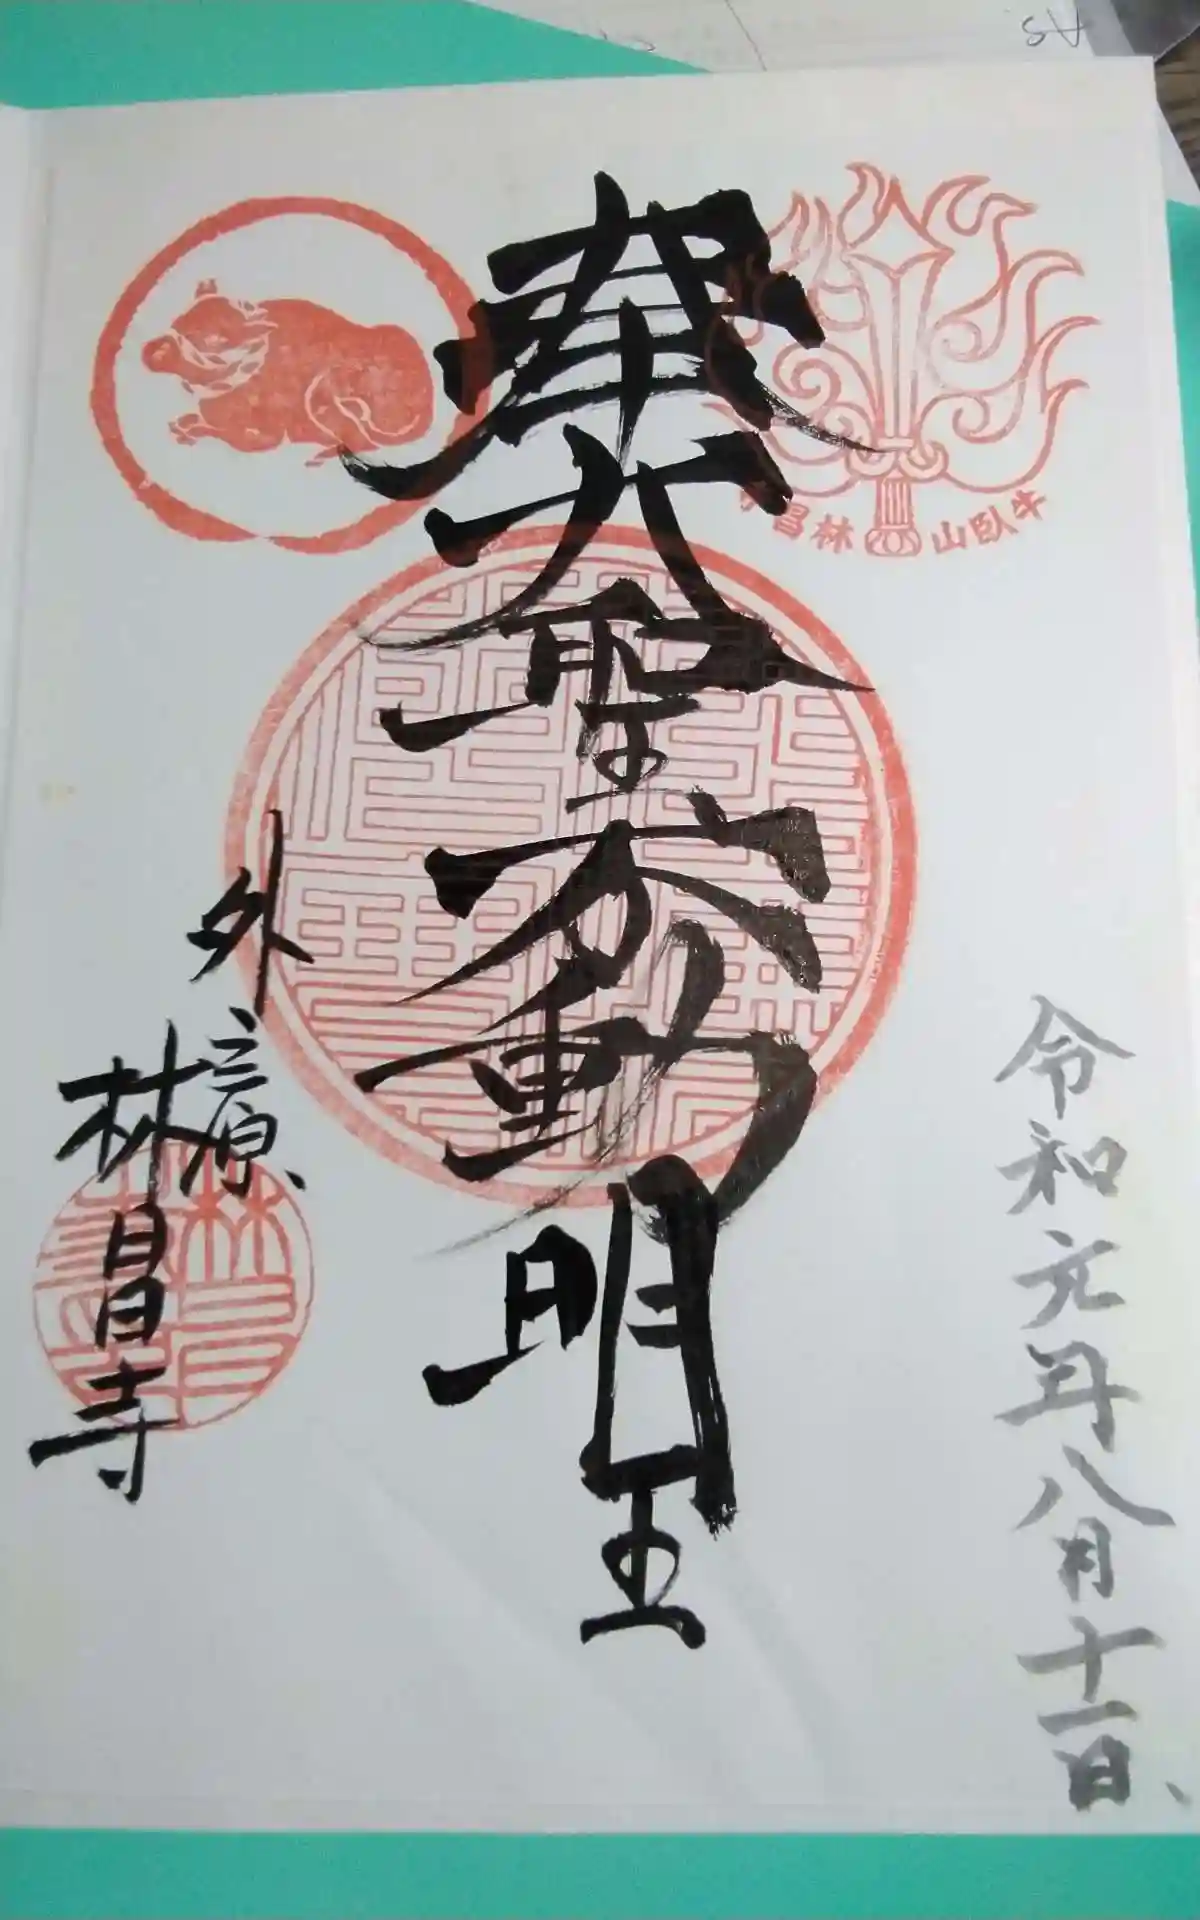 令和元年八月十一日、
牛臥山 林昌寺
奉 大聖不動明王
外三原、
林昌寺